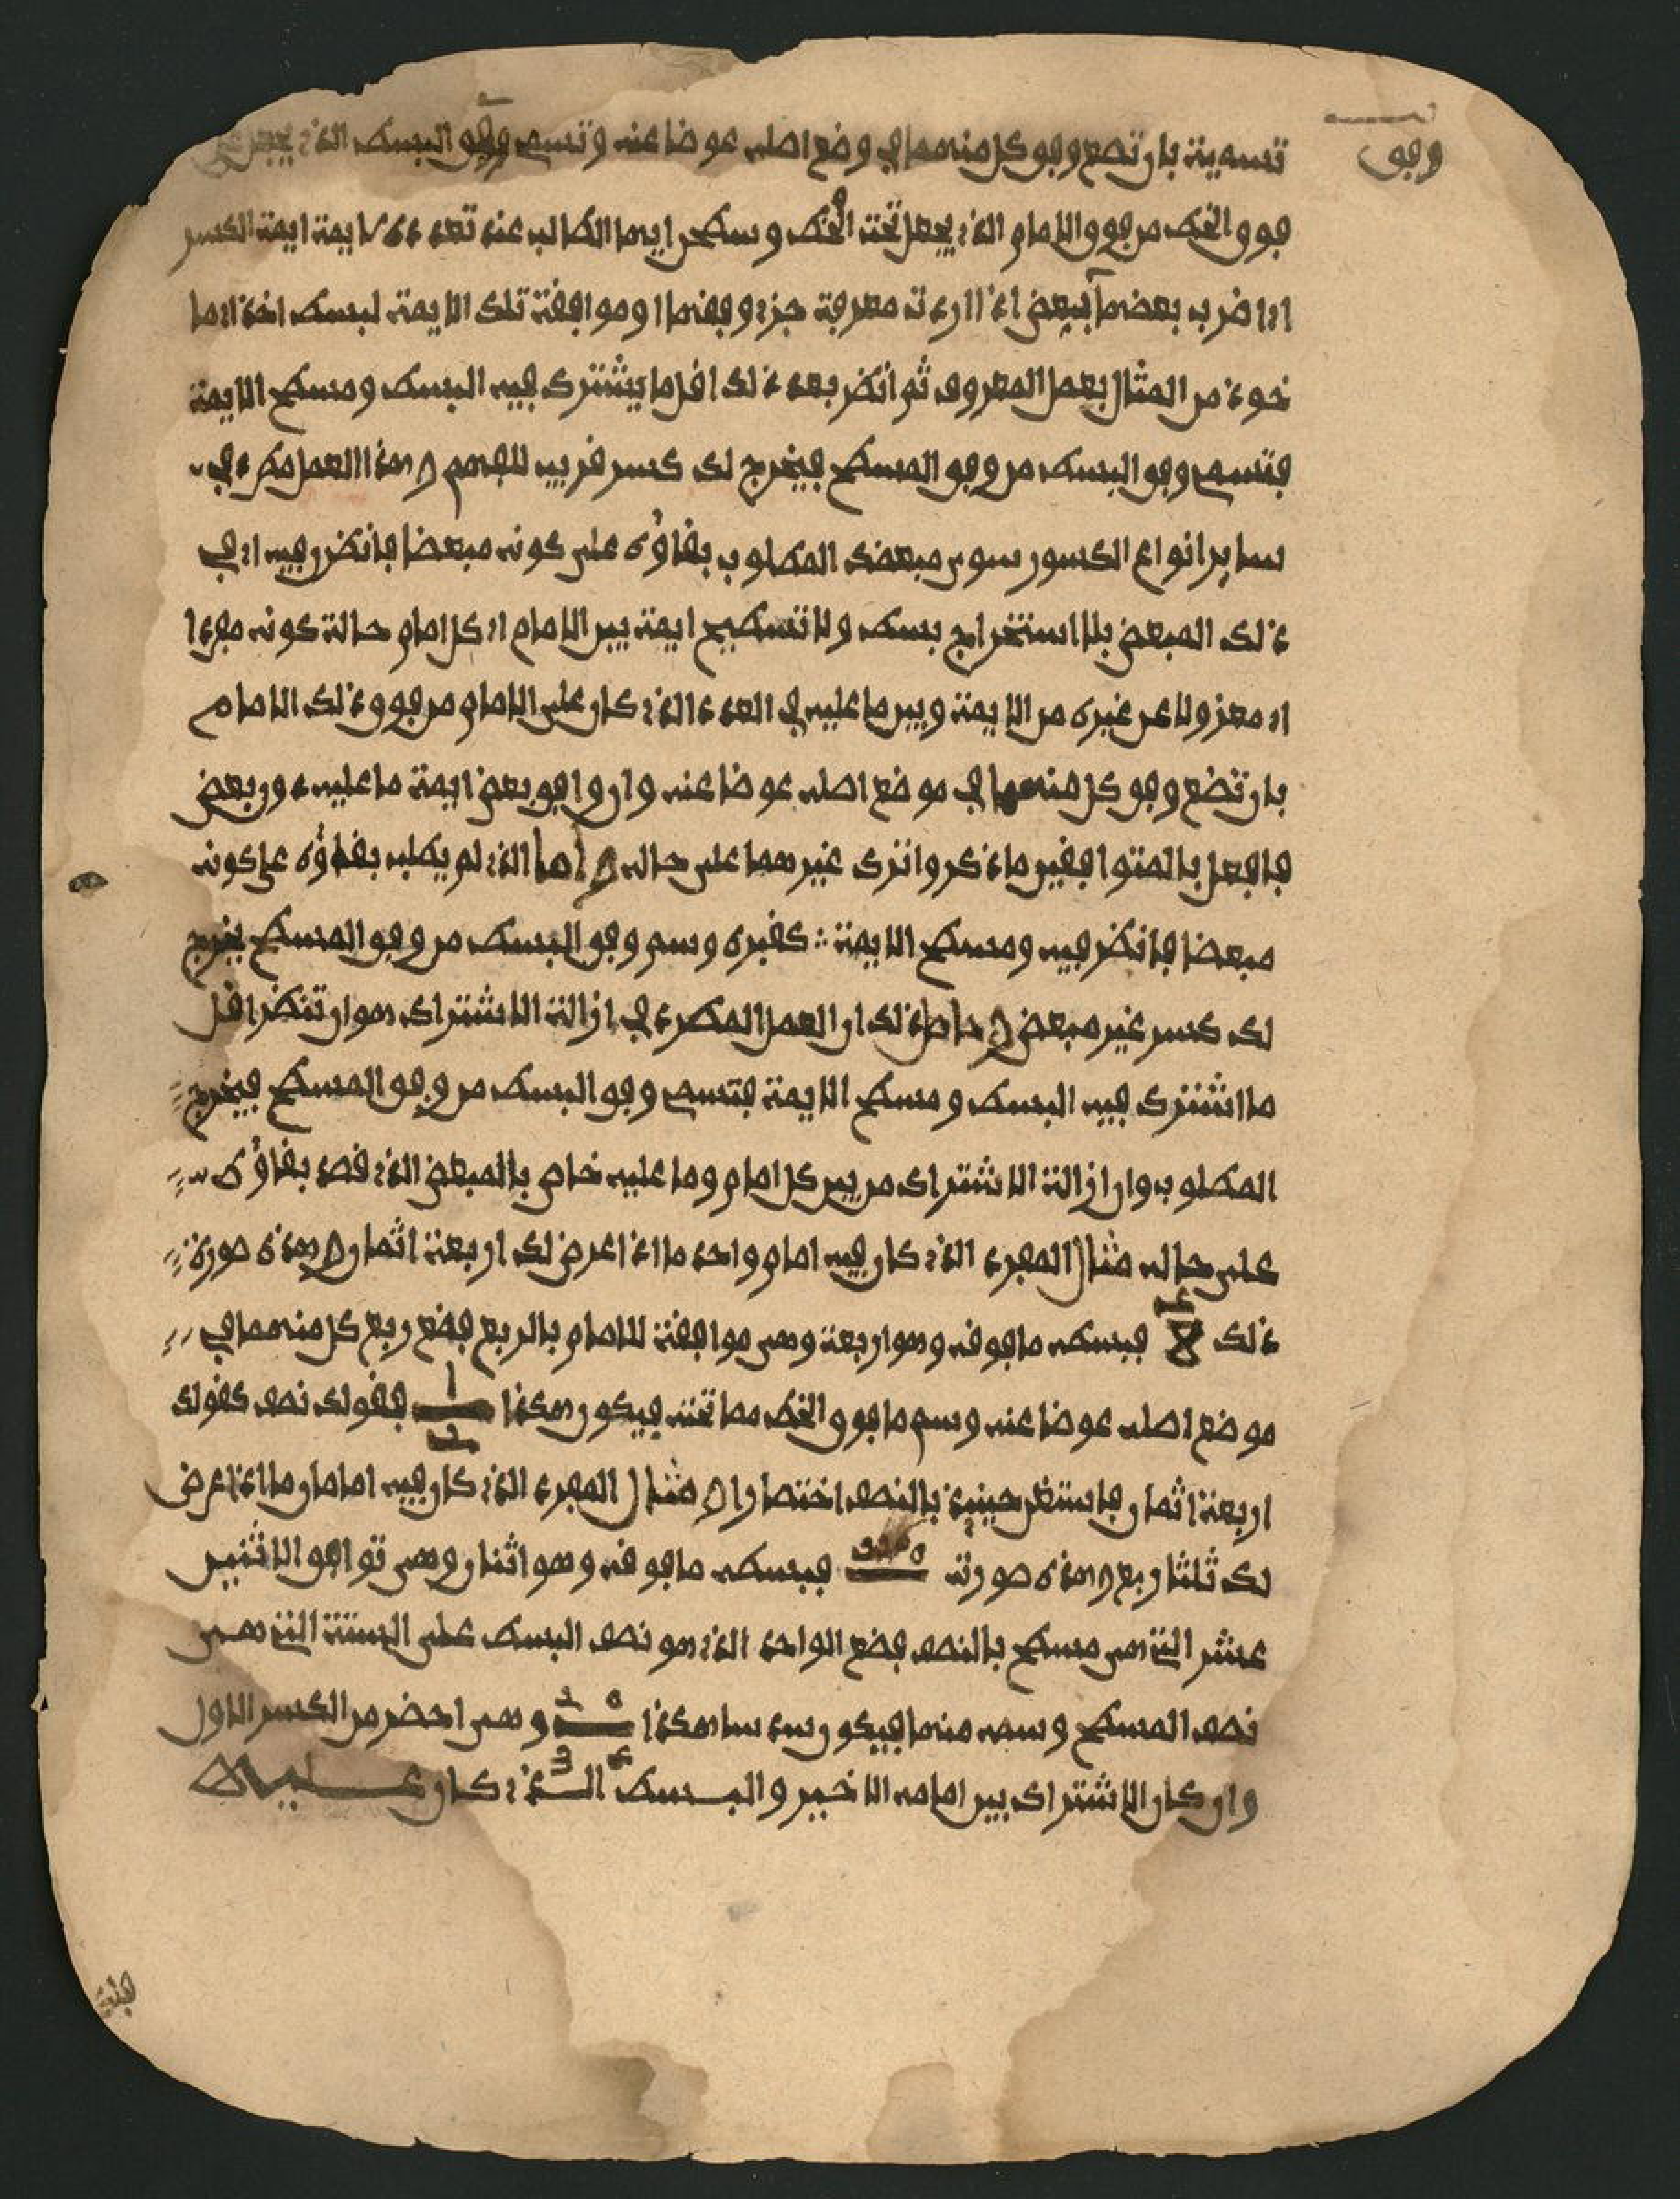 وفق
تسمية بان تضع وفق كل منهما في وضع اصله عوضا عنه وتسم وفق البسط الذي يجعل
فوق الخط من فوق الامام الذي يجعل تحت الخط وسطح ايها الطالب عند تعدد الايمة ايمة الكسر
اي اضرب بعضها ببعض اذا اردت معرفة جزء وفقها او موافقة تلك الايمة لبسط اخذا ما
خوذ من المثال بعمل المعروف ثم انظر بعد ذلك اقل ما يشترك فيه البسط ومسطح الايمة
فتسم وفق البسط من وفق المسطح فيخرج لك كسر قريب للفهم وهذا العمل مطرد في
ساير انواع الكسور سوى مبعضك المطلوب بقاؤه على كونه مبعضا فانظرن فيه اي في
ذلك المبعض بلا استخراج بسط ولا تسطيح ايمة بين الامام اي كل امام حالة كونه مفردا
اي معزولا عن غيره من الايمة وبين ما عليه في العدد الذي كان على الامام من فوق ذلك الامام
بان تضع وفق كل منهما في موضع اصله عوضا عنه وان وافق بعض ايمة ما عليه دون بعض
فافعل بالمتوافقين ما ذكر واترك غيرهما على حاله اما الذي لم يطلب بقاؤه على كونه
مبعضا فانظر فيه ومسطح الايمة كغيره وسم وفق البسط من وفق المسطح يخرج
لك كسر غير مبعض حاصل ذلك ان العمل المطرد في ازالة الاشتراك هو ان تنظر اقل
ما اشترك فيه البسط ومسطح الايمة فتسم وفق البسط من وفق المسطح فيخرج
المطلوب وان ازالة الاشتراك من بين كل امام وما عليه خاص بالمبعض الذي قصد بقاؤه
على حاله مثال المفرد الذي كان فيه امام واحد ما اذا عرض لك اربعة اثمان وهذه صورة
ذلك ٤ ٨ فبسطه ما فوقه وهو اربعة وهي موافقة للامام بالربع فضع ربع كل منهما في
موضع اصله عوضا عنه وسم ما فوق الخط مما تحته فيكون هكذا ١ ٢ فقولك نصف كقولك
اربعة اثمان فاستغن حينيذ بالنصف اختصارا مثال المفرد الذي كان فيه امامان ما اذا عرض
لك ثلثا ربع وهذه صورته فبسطه ما فوقه وهو اثنان وهي توافق الاثنين
عشر التي هي مسطح بالنصف فضع الواحد الذي هو نصف البسط على الستة التي هي
نصف المسطح وسمه منها فيكون سدسا هكذا وهي اخصر من الكسر الاول
وان كان الاشتراك بين امامه الاخير والبسط الذي كان عليه